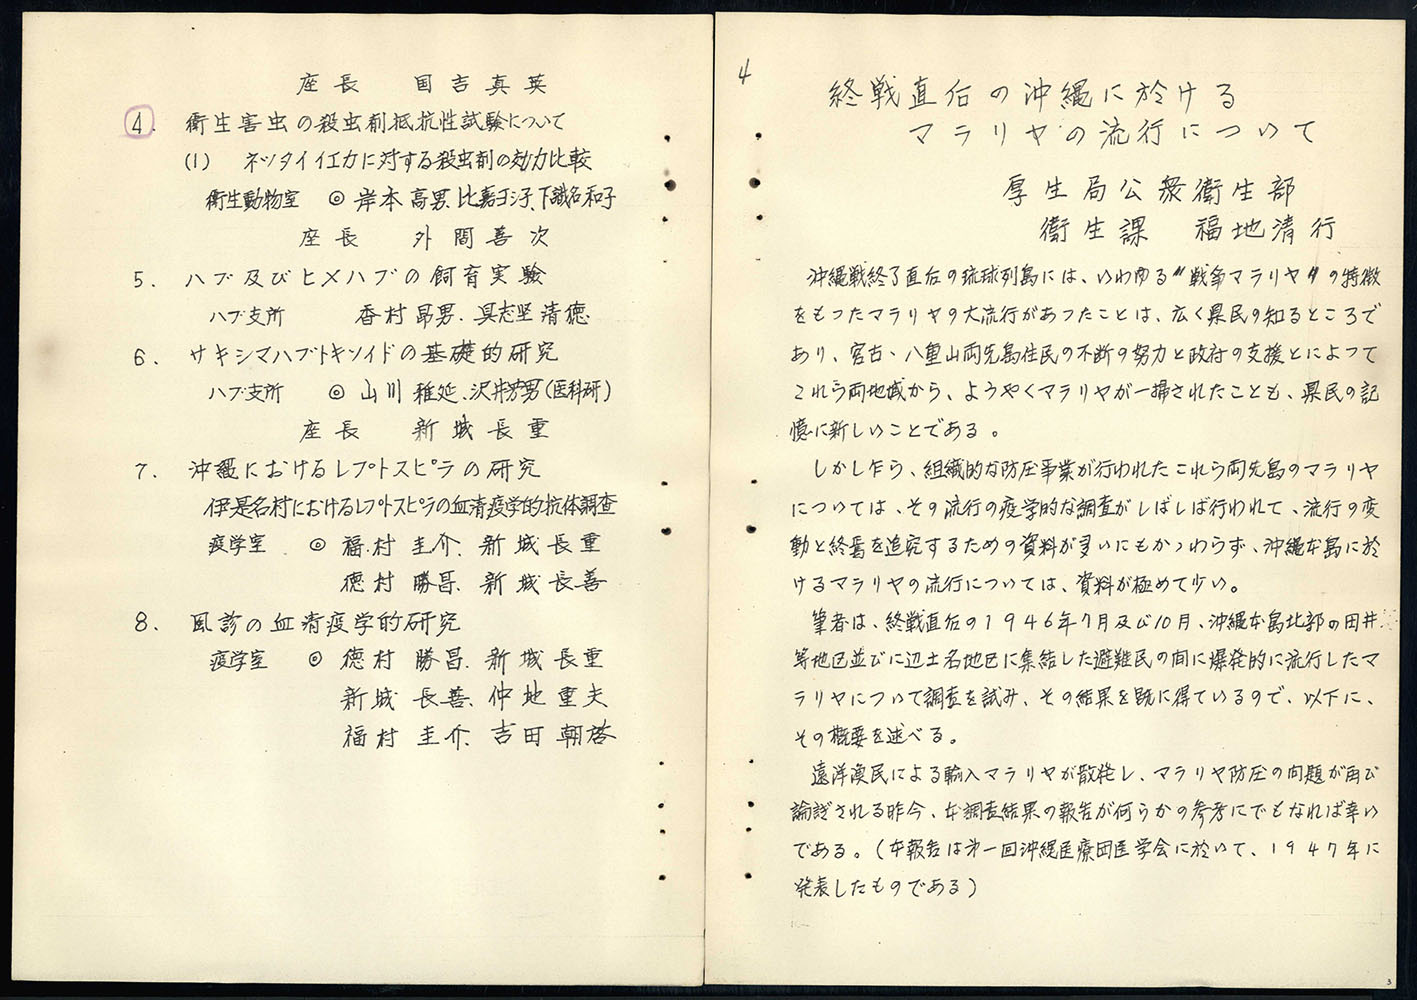 座長　国吉真英
4.　衛生害虫の殺虫剤抵抗性試験について
(1)　ネッタイイエカに対する殺虫剤の効力比較
衛生動物室　◎ 岸本高男、比嘉ヨシ子、下謝名和子
座長　外間善次
5.　ハブ及びヒメハブの飼育実験
ハブ支所　香村昂男、具志堅清徳
6.　サキシマハブトキソイドの基礎的研究
ハブ支所　◎ 山川雅延、沢井芳男(医科研)
座長　新城長重
7.　沖縄におけるレプトスピラの研究
伊是名村におけるレプトスピラの血清疫学的抗体調査
疫学室　◎ 福村圭介、新城長重
徳村勝昌、新城長善
8.　風診の血清疫学的研究
疫学室　◎ 徳村勝昌、新城長重
新城長善、仲地重夫
福村圭介、吉田朝啓
4
終戦直后の沖縄に於ける
マラリヤの流行について
厚生局公衆衛生部
衛生課　福地清行
沖縄戦終了直后の琉球列島には、いわゆる〝戦争マラリヤ〟の特徴
をもつたマラリヤの大流行があつたことは、広く県民の知るところで
あり、宮古、八重山両先島住民の不断の努力と政府の支援とによつて
これら両地域から、ようやくマラリヤが一掃されたことも、県民の記
憶に新しいことである。
しかし乍ら、組織的な防圧事業が行われたこれら両先島のマラリヤ
については、その流行の疫学的な調査がしばしば行われて、流行の変
動と終焉を追究するための資料が多いにもかゝわらず、沖縄本島に於
けるマラリヤの流行については、資料が極めて少い。
筆者は、終戦直后の1946年7月及び10月、沖縄本島北部の田井
等地区並びに辺土名地区に集結した避難民の間に爆発的に流行したマ
ラリヤについて調査を試み、その結果を既に得ているので、以下に、
その概要を述べる。
遠洋漁民による輸入マラリヤが散発し、マラリヤ防圧の問題が再び
論議される昨今、本調査結果の報告が何らかの参考にでもなれば幸い
である。(本報告は第一回沖縄医療団医学会に於いて、1947年に
発表したものである)
3